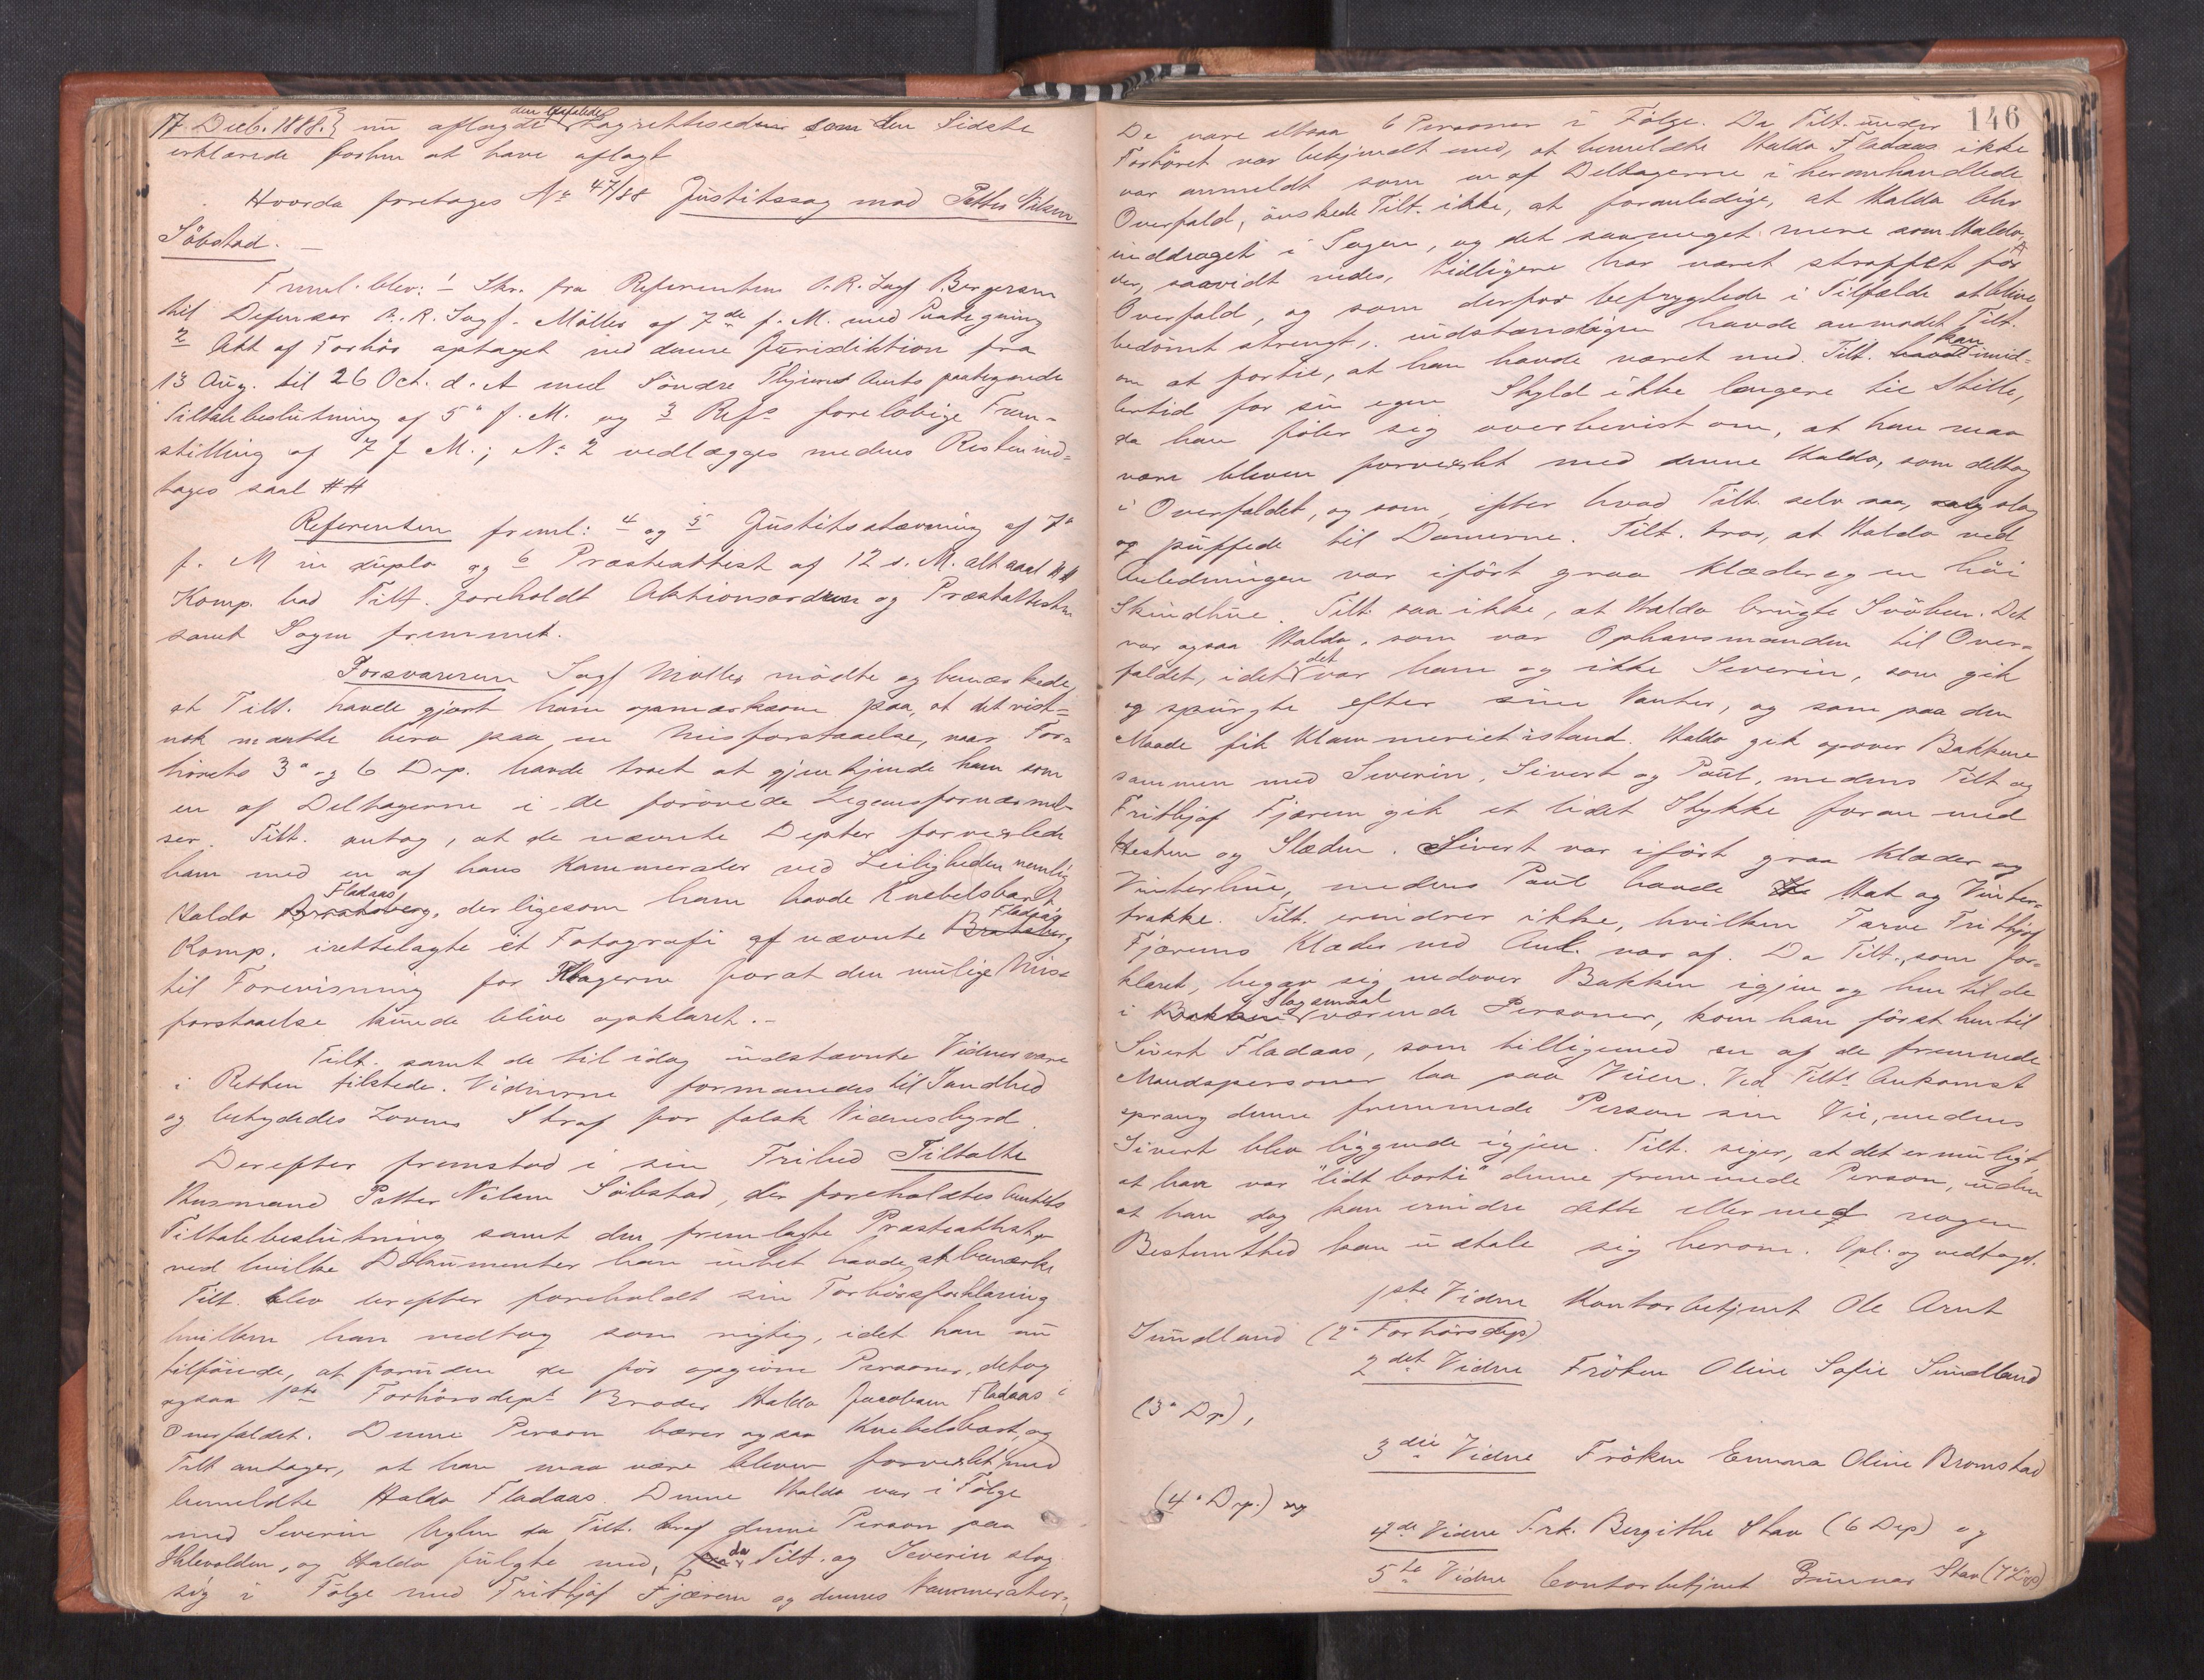 17. Decb. 1888.} nu aflagde den befalede Lagrettesed som den Sidste
erklærede forhen at have aflagt
Hvorda foretages No 47/88 Justitssag mod Petter Nilsen
Söbstad. —
Freml. blev: 1 Skr. fra Referenten O.R. Sagf. Bergersen
til Defensor O.R. Sagf. Möller af 7de f. M. med Paategning
2 Att af Forhör optaget ved denne Jurisdiktion fra
13 Aug. til 26 Oct. d. A med Söndre Thjems Amts paategnede
Tiltalebeslutning af 5' f. M. og 3 Refs foreløbige Frem-
stilling af 7 f M.; No 2 vedlægges medens Resten ind-
tages saal ##
Referenten freml: 4 og 5 Justitsstævning af 7'
f. M in duplo og 6 Præsteattest af 12 s. M. alt saal ##
Komp. bad Tilt. foreholdt Aktionsordren og Præstattesten
samt Sagen fremmet.
Forsvareren Sagf Möller mödte og bemærkede,
at Tilt. havde gjort ham opmærksom paa, at det vist-
nok maatte bero paa en Misforstaaelse, naar For-
hörets 3' og 6 Dep. havde troet at gjenkjende ham som
en af Deltagerne i de forövede Legemsfornærmel-
ser. Tilt. antog, at de nævnte Depter forvexlede
ham med en af hans Kammerater ved Leiligheden nemlig
Haldo Fladaas, der ligesom ham havde Knebelsbart
Komp. irettelagte et Fotografi af nævnte Fladaas
til Forevisning for Klagerne forat den mulige Mis-
forstaaelse kunde blive opklaret.-
Tilt. samt de til idag indstævnte Vidner vare
i Retten tilstede. Vidnerne formanedes til Sandhed
og betydedes Lovens Straf for falsk Vidnesbyrd.
Derefter fremstod i sin Frihed Tiltalte
Husmand Petter Nilsen Söbstad, der foreholdtes Amtets
Tiltalebeslutning samt den fremlagte Præsteattest
ved hvilke Dokumenter han intet havde at bemærke
Tilt. blev derefter foreholdt sin Forhörsforklaring
hvilken han vedtog som rigtig, idet han nu
tilföiede, at foruden de för opgivne Personer, deltog
ogsaa 1ste Forhörsdepts Broder Haldo Jacobsen Fladaas i
Overfaldet. Denne Person bærer ogsaa Knebelsbart, og
Tilt antager, at han maa være bleven forvexlet med
bemeldte Haldo Fladaas. Denne Haldo var i Fölge
med Severin Uglen da Tilt. traf denne Person paa
Ihlevolden, og Haldo fulgte med, da Tilt. og Severin slog
sig i Fölge med Frithjof Fjærem og dennes Kammerater.
146
De vare altsaa 6 Personer i Fölge. Da Tilt. under
Forhöret var bekjendt med, at bemeldte Haldo Fladaas ikke
var anmeldt som en af Deltagerne i heromhandlede
Overfald, önskede Tilt. ikke, at foranledige, at Haldo blev
inddraget i Sagen, og det saameget mere som Haldo,
der, saavidt vides, tidligere har været straffet for
Overfald, og som derfor befrygtede i Tilfælde at blive
bedömt strengt, indstændigen havde anmodet Tilt.
om at fortie, at han havde været med. Tilt. kan imid-
lertid for sin egen Skyld ikke længere tie Stille,
da han föler sig overbevist om, at han maa
være bleven forvexlet med denne Haldo, som deltog
i Overfaldet, og som, efter hvad Tilt. selv saa, slog
og puffede til Damerne. Tilt. tror, at Haldo ved
Anledningen var iført graa Klæder og en höi
Skindhue. Tilt. saa ikke, at Haldo brugte Svöben. Det
var ogsaa Haldo, som var Ophavsmanden til Over-
faldet, idet det var ham og ikke Severin, som gik
og spurgte efter sine Vanter, og som paa den
Maade fik Klammeriet istand. Haldo gik opover Bakkene
sammen med Severin, Sivert og Paul, medens Tilt og
Frithjof Fjærem gik et lidet Stykke foran med
Hesten og Slæden. Sivert var iført graa Klæder og
Vinterhue, medens Paul havde Hat og Vinter-
frakke. Tilt. erindrer ikke, hvilken Farve Frithjof
Fjærems Klæder ved Anl. var af. Da Tilt., som for-
klaret, begav sig nedover Bakken igjen og hen til de
i Slagsmaal værende Personer, kom han först hen til
Sivert Fladaas, som tilligemed en af de fremmede
Mandspersoner laa paa Veien. Ved Tilts Ankomst
sprang denne fremmede Person sin Vei, medens
Sivert blev liggende igjen. Tilt. siger, at det er muligt,
at han var "lidt borti" denne fremmede Person, uden
at han dog kan erindre dette eller med nogen
Bestemthed kan udtale sig herom. Opl. og vedtaget.
1ste Vidne Kontorbetjent Ole Arnt
Sundland (2' Forhörsdep)
2det Vidne Fröken Oline Sofie Sundland
(3' Dp),
3die Vidne Fröken Emma Oline Bromstad
(4' Dep.) og
4de Vidne Frk. Bergithe Stav (6 Dep) og
5te Vidne Contorbetjent Gunnar Stav (7 Dep)